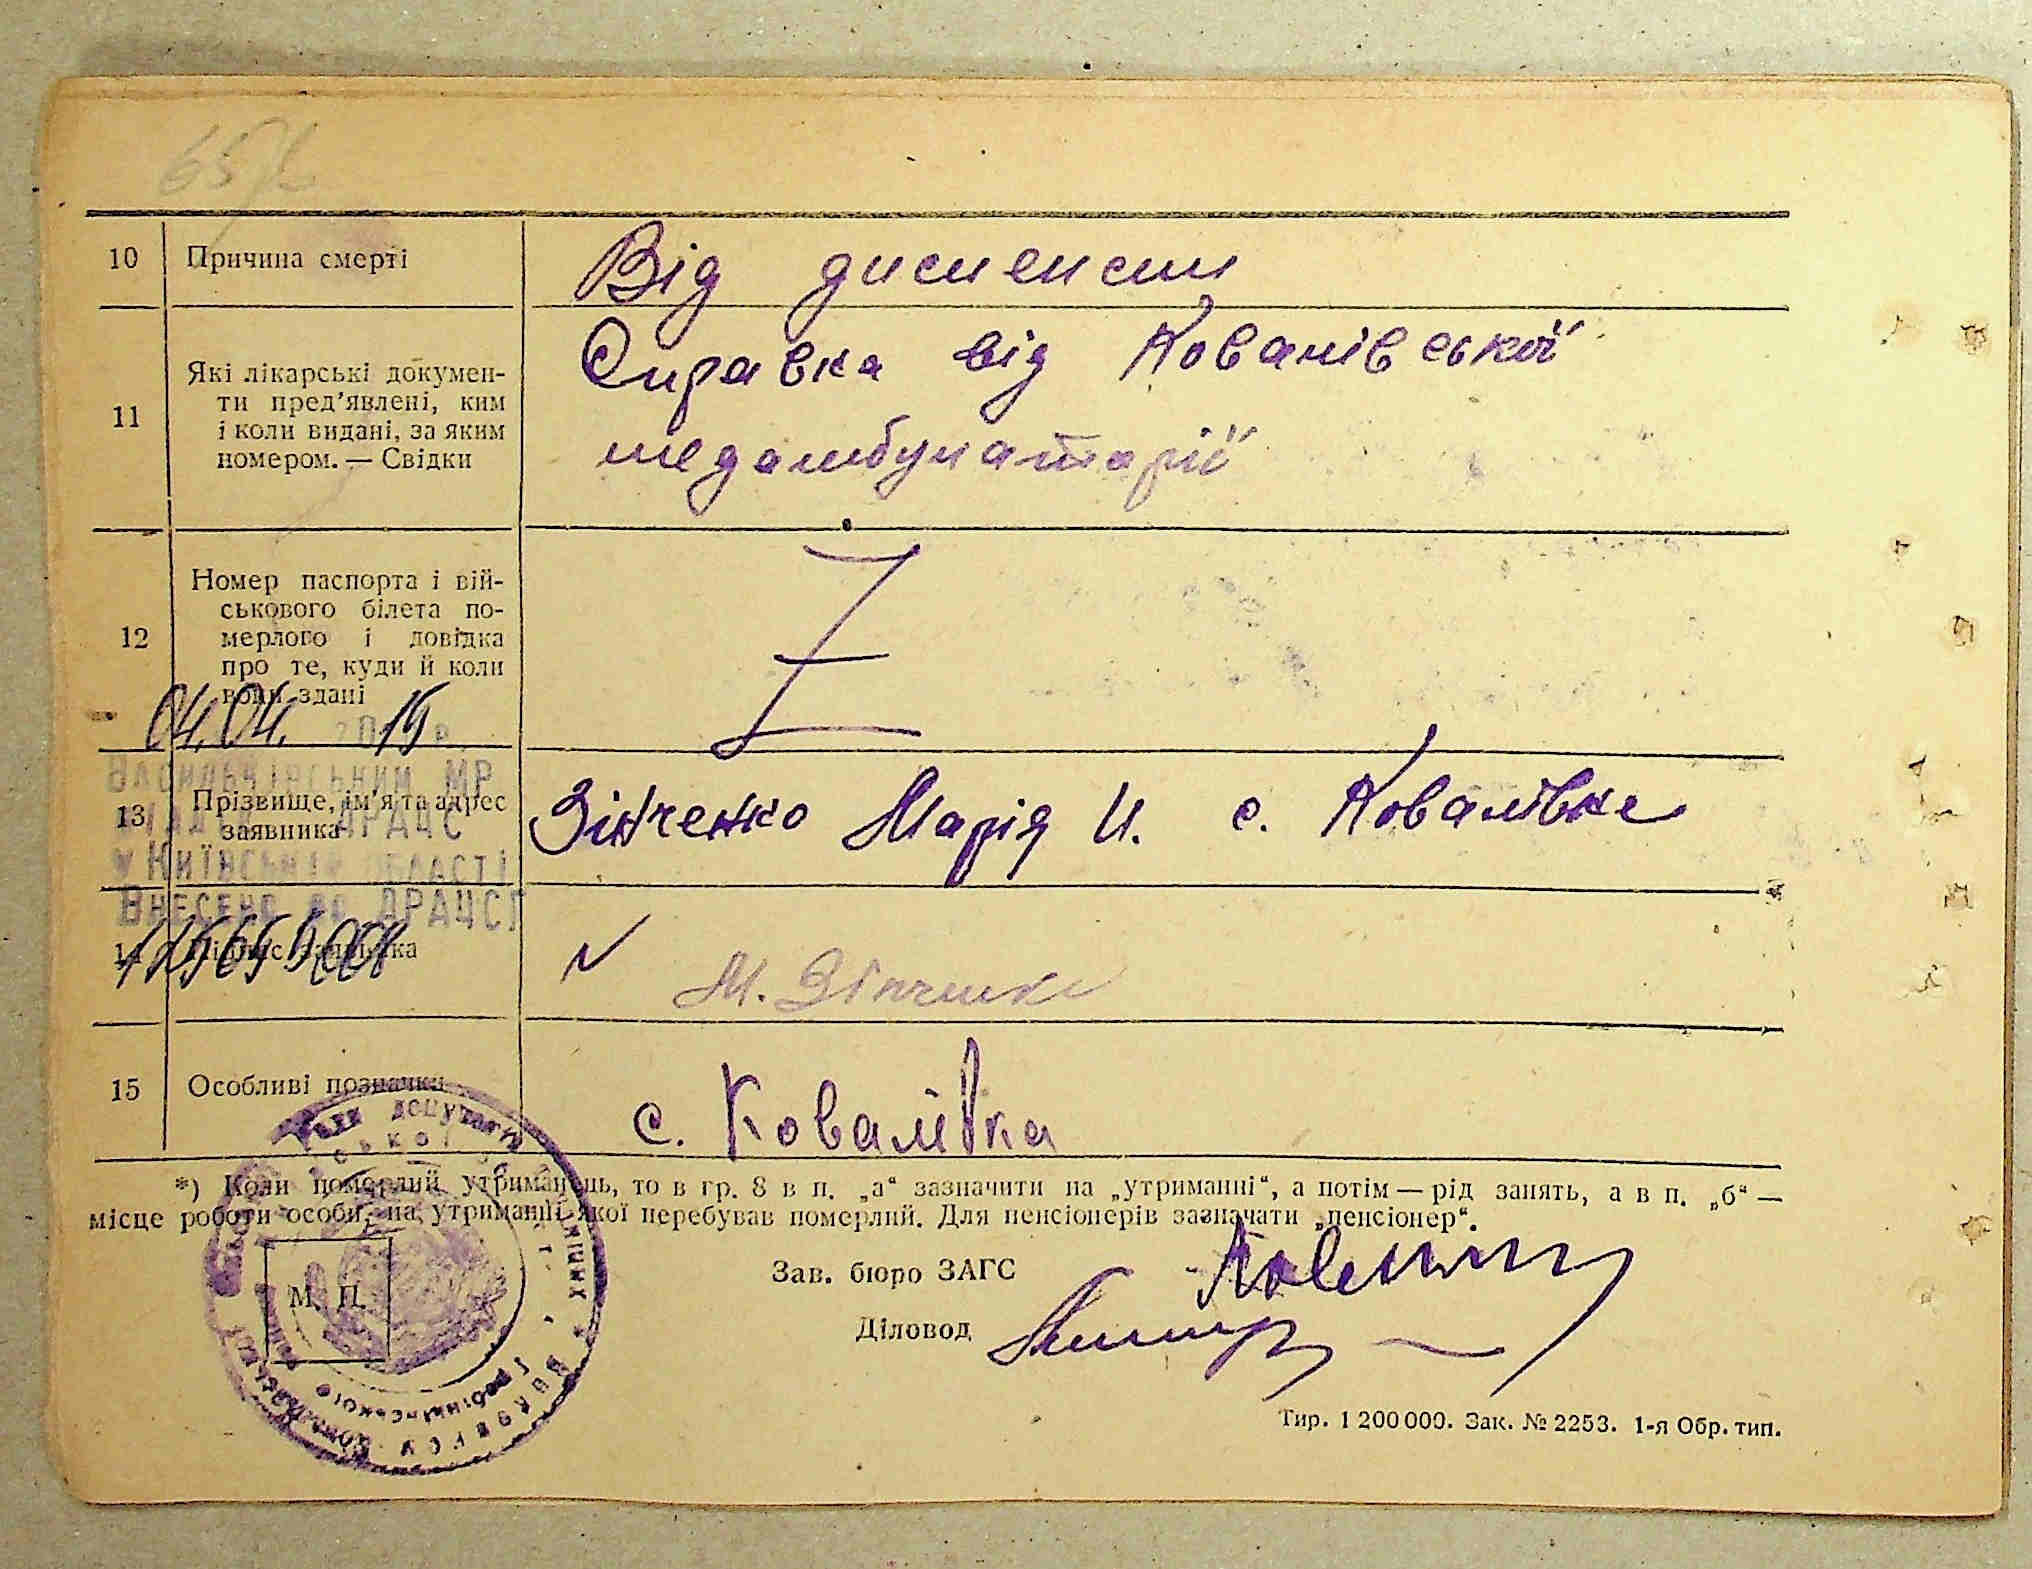 10 Причина смерті Від диспепсии
11 Які лікарські докумен-
ти пред'явлені, ким
і коли видані, за яким
номером. — Свідки
Справка від Ковалівської
медамбулаторії
12 Номер паспорта і вій-
ськового білета по-
мерлого і довідка
про те, куди й коли
вони здані
Z
04.04. 15
Васильківським МР
ДРАЦС
у Київській області
Внесено до ДРАЦСГ
13 Прізвище, ім'я та адрес
заявника
Зінченко Марія И. с. Ковалівка
14 Підпис заявника
М. Зінченко
15 Особливі позначки с. Ковалівка
*) Коли померлий утриманець, то в гр. 8 в п. „а“ зазначити на „утриманні“, а потім — рід занять, а в п. „б“ —
місце роботи особи, на утриманні якої перебував померлий. Для пенсіонерів зазначати „пенсіонер“.
М. П.
Зав. бюро ЗАГС
Діловод
Тир. 1 200 000. Зак. № 2253. 1-я Обр. тип.